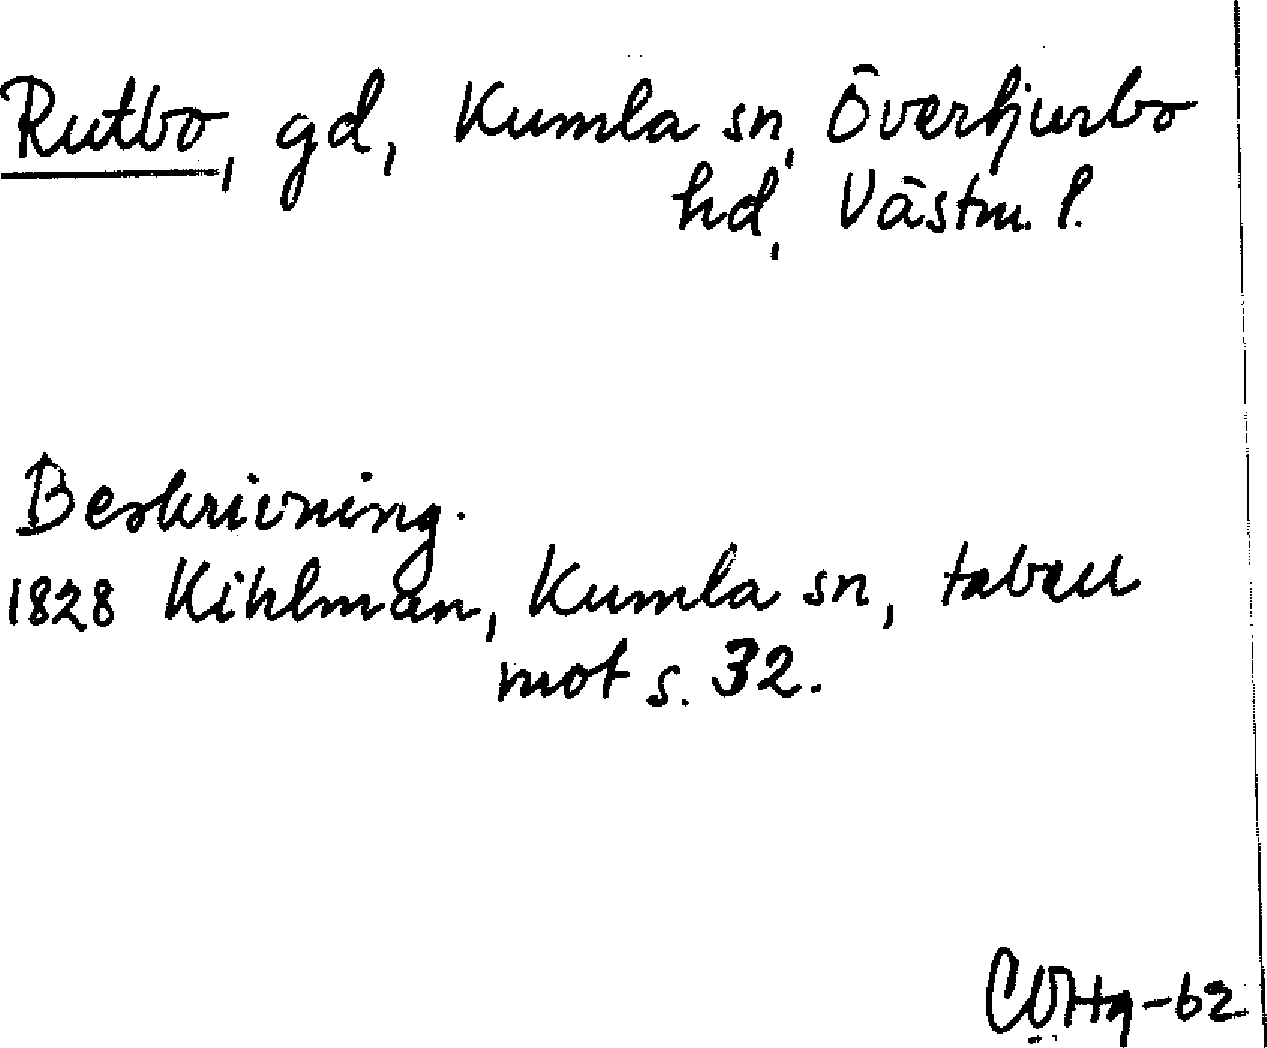 Rutbo, gd, Kumla sn, Övertjurbo
hd, Västm. l.
Beskrivning.
1828 Kihlman, Kumla sn, tabell
mot s. 32.
-62